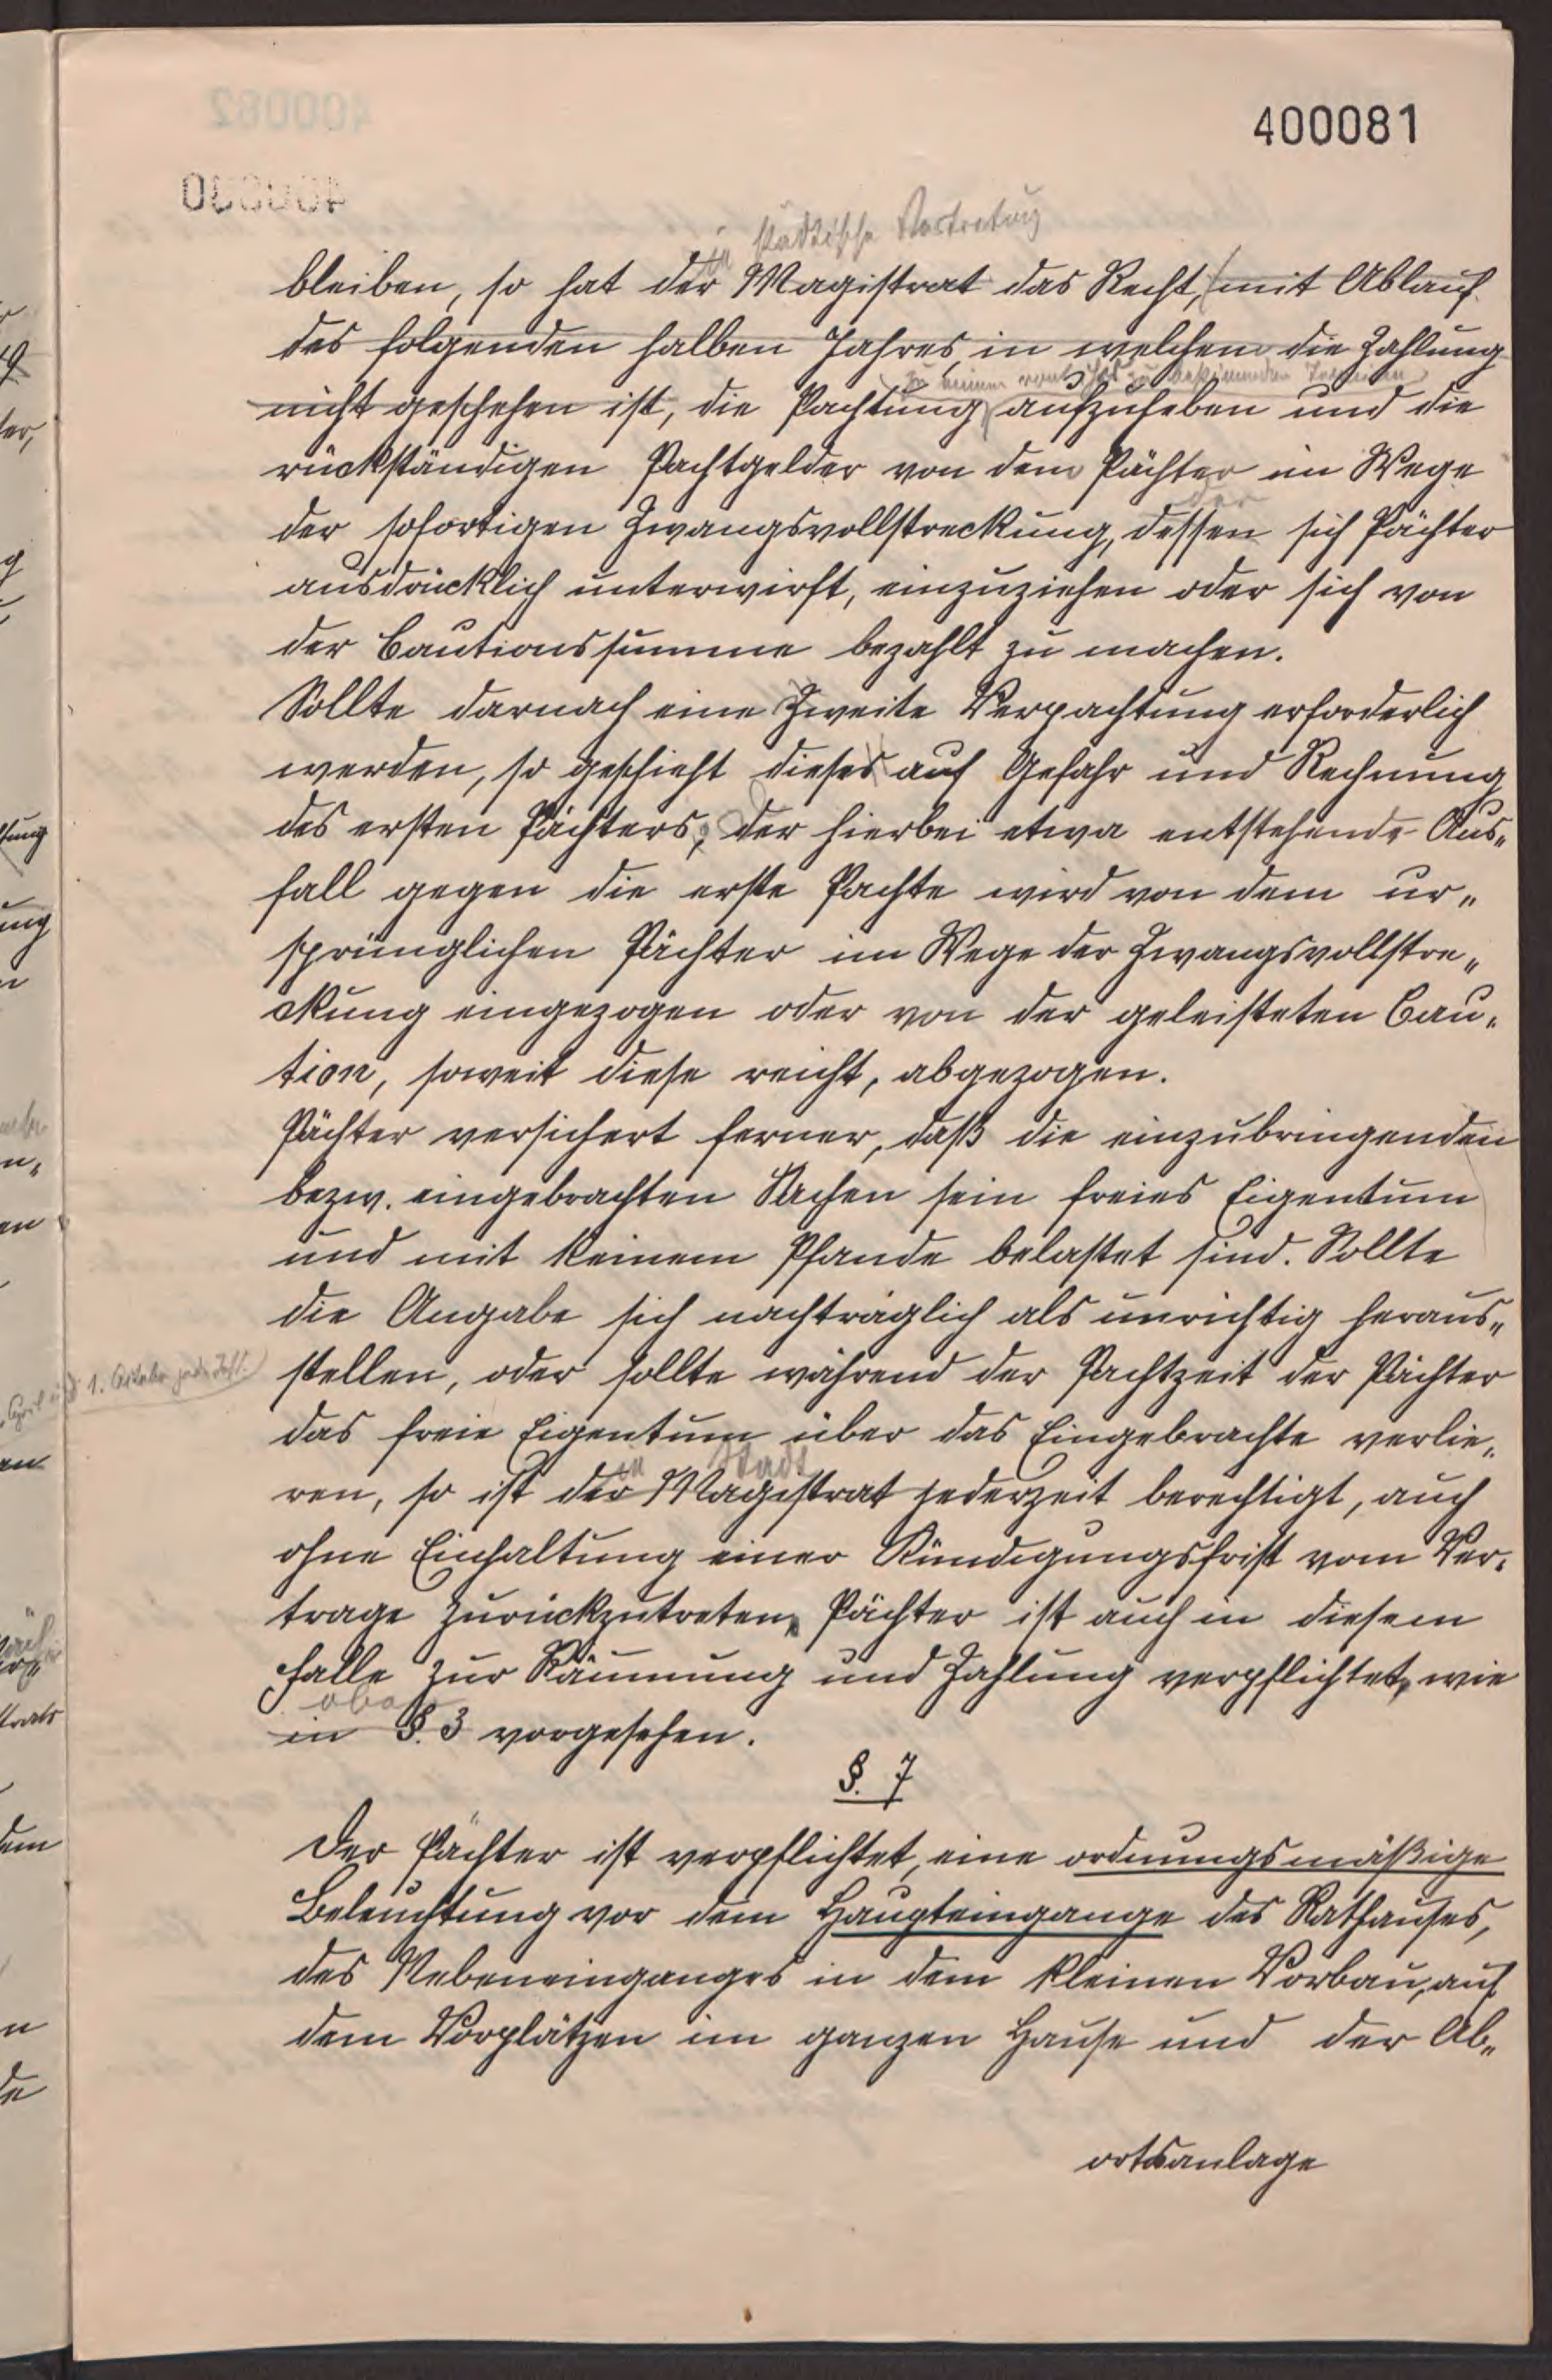 400081
städtische Vertretung
bleiben, so hat der Magistrat das Recht, mit Ablauf
des folgenden halben Jahres, in welchem die Zahlung
zu einem von ihr zu bestimmenden Termine
nicht geschehen ist, die Pachtung aufzuheben und die
rückständigen Pachtgelder von dem Pächter im Wege
der
der sofortigen Zwangsvollstreckung, dessen sich Pächter
ausdrücklich unterwirft, einzuziehen oder sich von
der Cautionssumme bezahlt zu machen.
Sollte darnach eine Zweite Verpachtung erforderlich
werden, so geschieht dieses auf Gefahr und Rechnung
des ersten Pächters; der hierbei etwa entstehende Aus„
fall gegen die erste Pachte wird von dem ur„
sprünglichen Pächter im Wege der Zwangsvollstre„
ckung eingezogen oder von der geleisteten Cau„
tion, soweit diese reicht, abgezogen.
Pächter versichert ferner, daß die einzubringenden
bezw. eingebrachten Sachen sein freies Eigentum
und mit keinem Pfande belastet sind. Sollte
die Angabe sich nachträglich als unrichtig heraus„
1. Oktober jeden Jahres
stellen, oder sollte während der Pachtzeit der Pächter
das freie Eigentum über das Eingebrachte verlie„
Stadt
ren, so ist der Magistrat jederzeit berechtigt, auch
ohne Einhaltung einer Kündigungsfrist vom Ver„
trage zurückzutreten, Pächter ist auch in diesem
Falle zur Räumung und Zahlung verpflichtet, wie
oben
in §. 3 vorgesehen.
§. 7
Der Pächter ist verpflichtet, eine ordnungsmäßige
Beleuchtung vor dem Haupteingange des Rathauses,
des Nebeneinganges in dem kleinen Vorbau, auf
dem Vorplätzen im ganzen Hause und der Ab„
ortsanlage